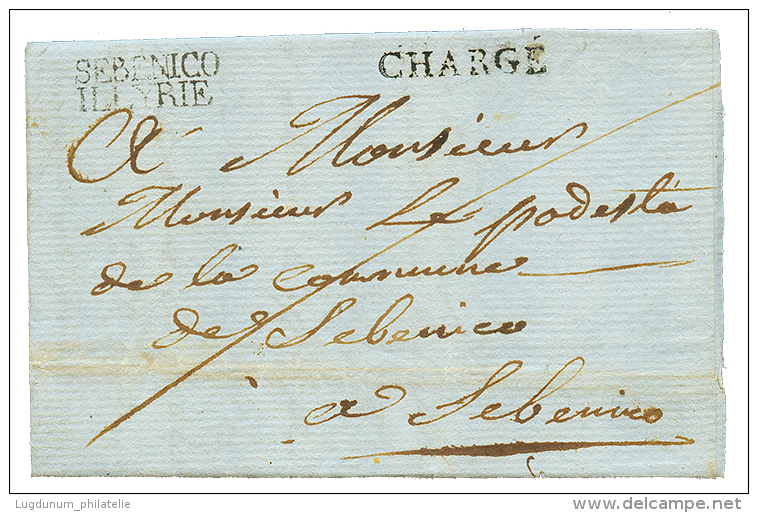 SEBENICO
ILLYRIE
CHARGÉ
A Monsieur
Monsieur Le podestà
de la commune
de Sebenico
a Sebenico
Lugdunum_philatelie
www.delcampe.net